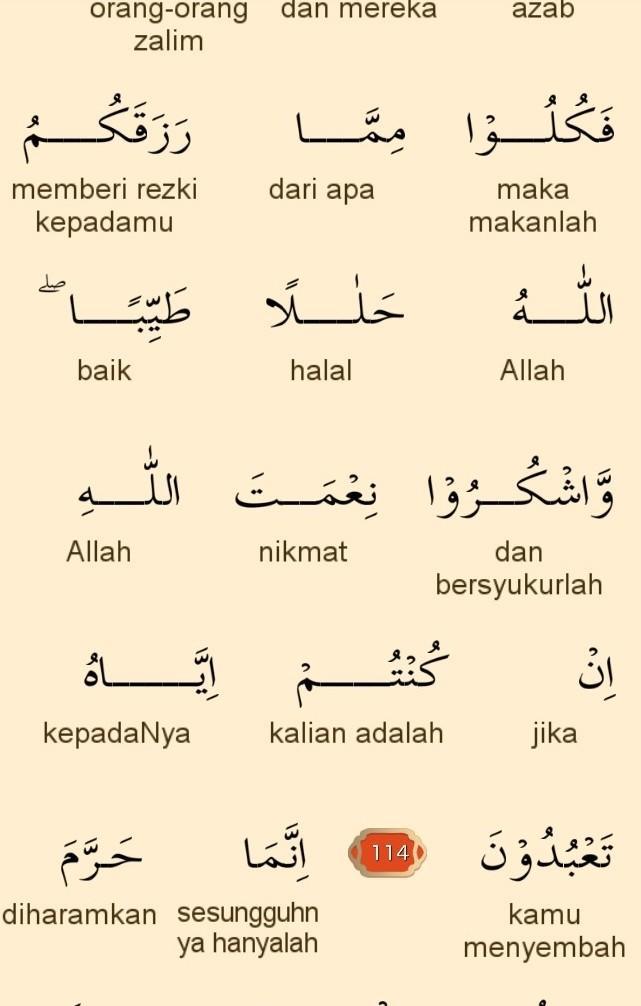 orang-orang dan mereka azab
zalim
فَكُلُوْا مِمَّا رَزَقَكُمُ
memberi rezki dari apa maka
kepadamu makanlah
اللّٰهُ حَلٰلًا طَيِّبًا ۖ
baik halal Allah
وَّاشْكُرُوْا نِعْمَتَ اللّٰهِ
Allah nikmat dan
bersyukurlah
اِنْ كُنْتُمْ اِيَّاهُ
kepadaNya kalian adalah jika
تَعْبُدُوْنَ 114 اِنَّمَا حَرَّمَ
diharamkan sesungguhn kamu
ya hanyalah menyembah